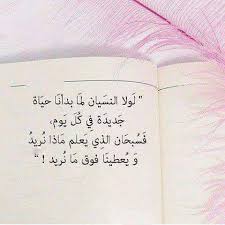 " لَولا النسَيان لمَا بدأنَا حيَاة
جَديدَة فِي كُل يَوم،
فَسُبحَان الذِي يَعلم مَاذا نُريدُ
وَ يُعطينَا فوق مَا نُريد ! "